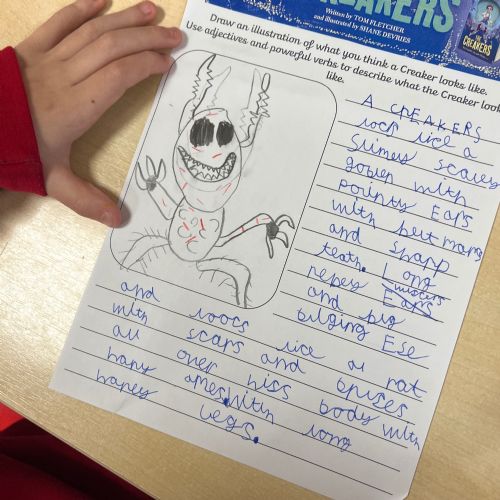 CREAKERS
Written by TOM FLETCHER
and illustrated by SHANE DEVRIES
THE CREAKERS
Draw an illustration of what you think a Creaker looks like.
Use adjectives and powerful verbs to describe what the Creaker look
like.
A CREAKERS
loock like a
Slimey scaley
goblen with
pointy Ears
with
and Shapp
teath. Long
wiscers
and big Ears
bulging Ese
and loocs like a rat
with scars and bruses
all over hiss body with
hany ames. With long
haney legs.